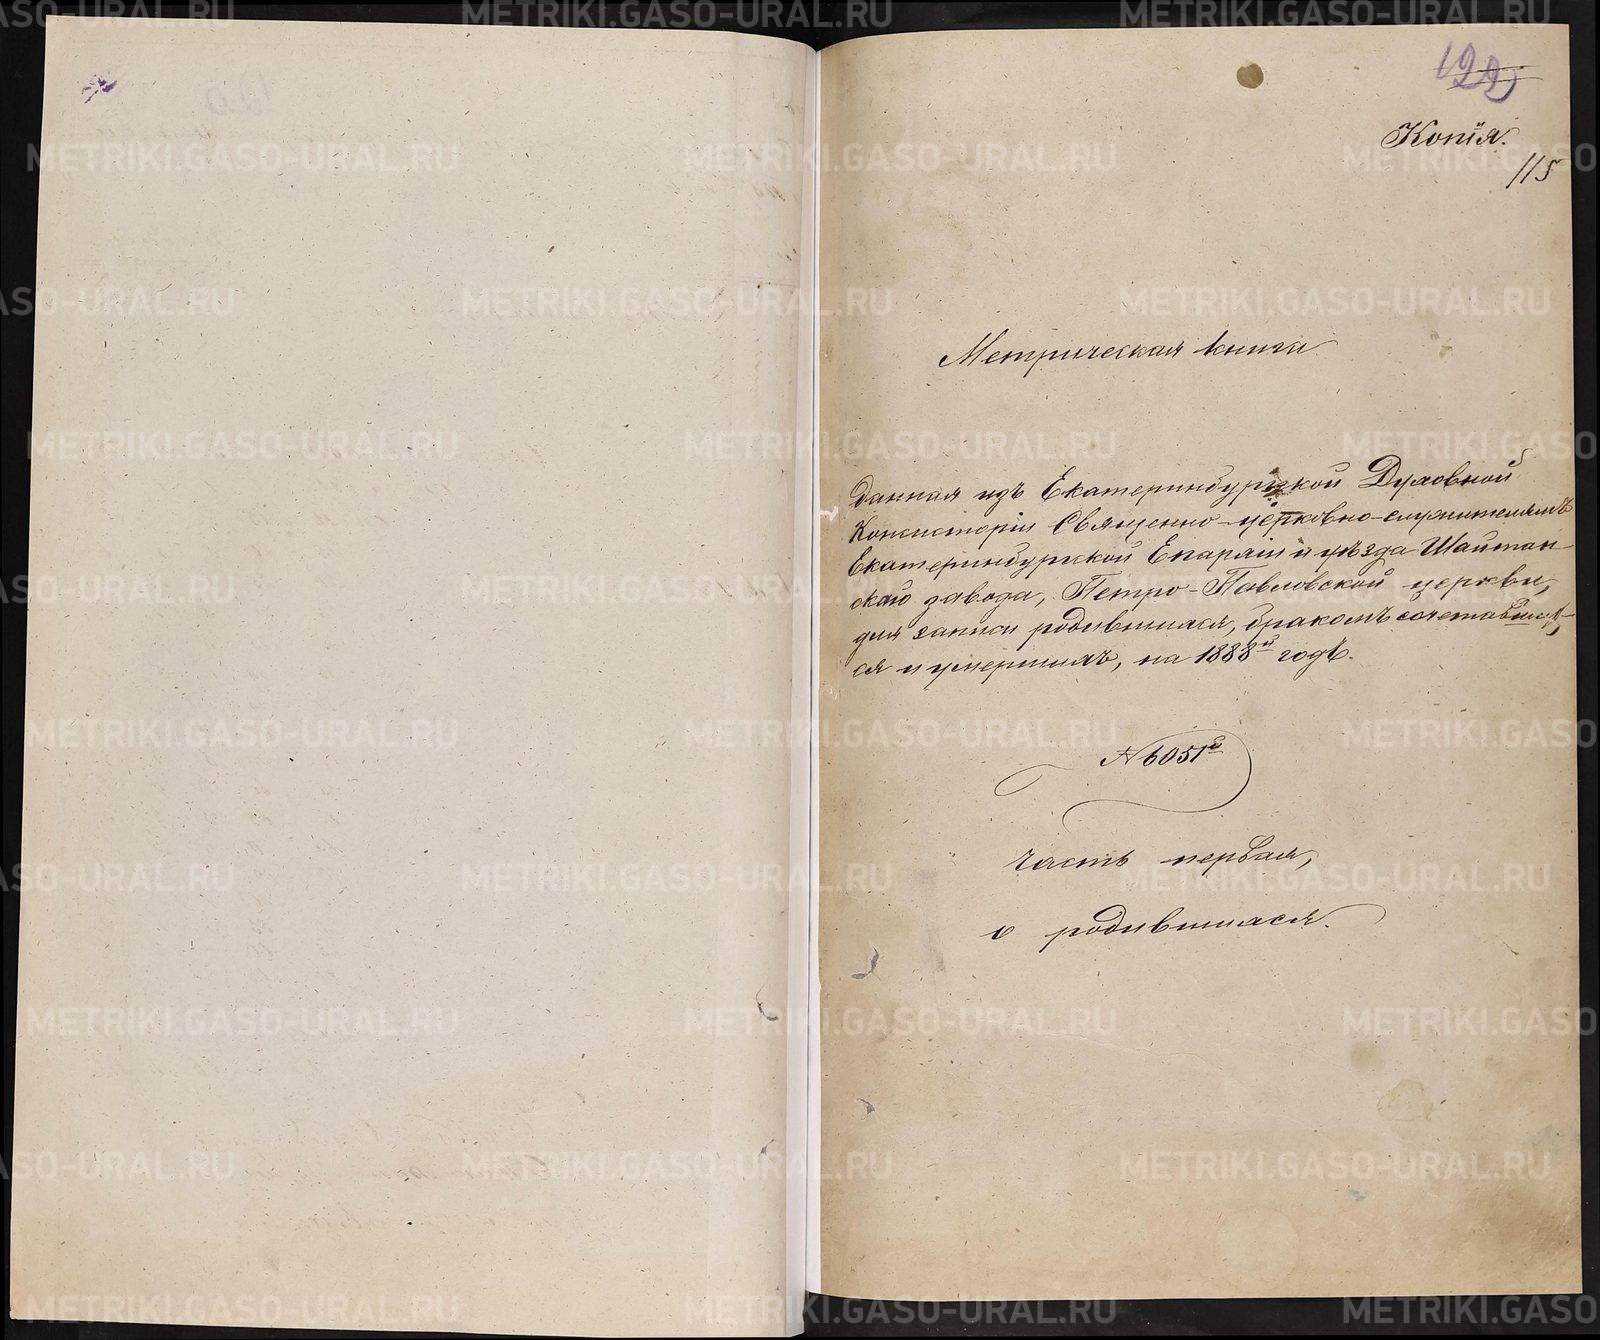 Копія.
115
Метрическая книга
данная изъ Екатеринбургской Духовной
Консисторіи Священно-церковно-служителямъ
Екатеринбургской Епархіи и уѣзда Шайтан
скаго завода, Петро-Павловской церкви,
для записи родившихся, бракомъ сочетавших
ся и умершихъ, на 1888й годъ.
№ 6051й
Часть первая,
о родившихся.